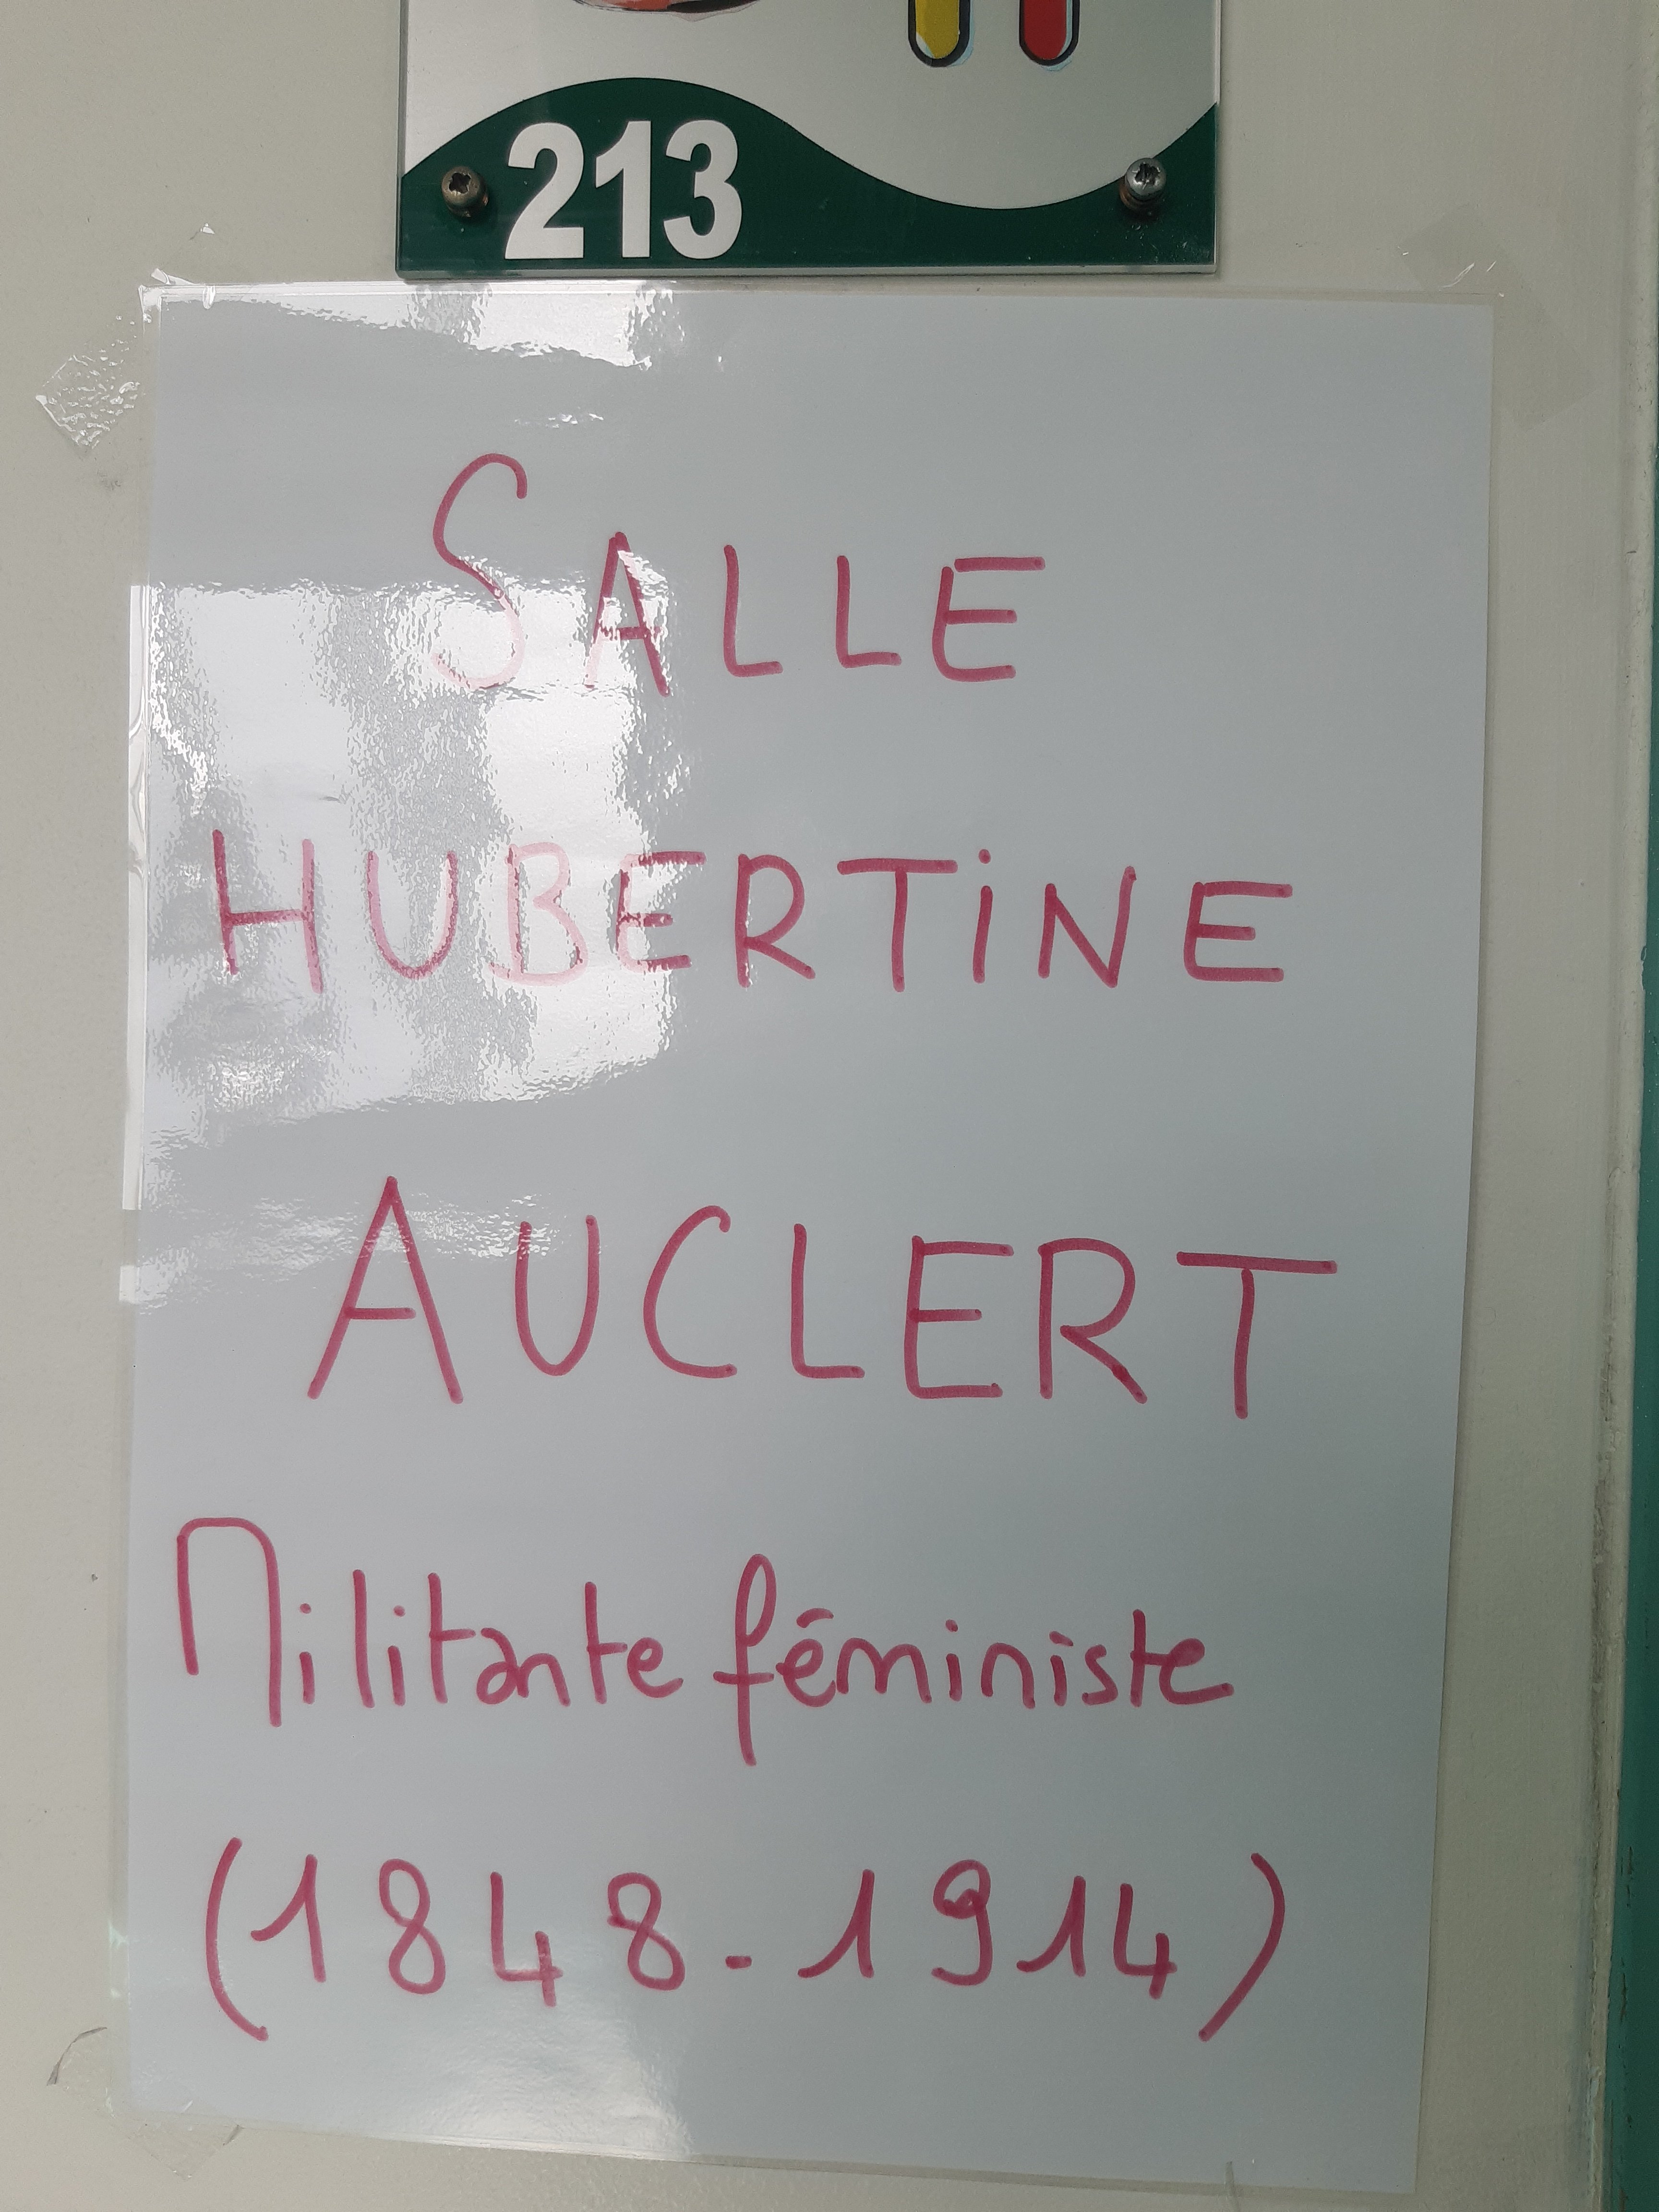 213
SALLE
HUBERTINE
AUCLERT
Militante féministe
(1848-1914)